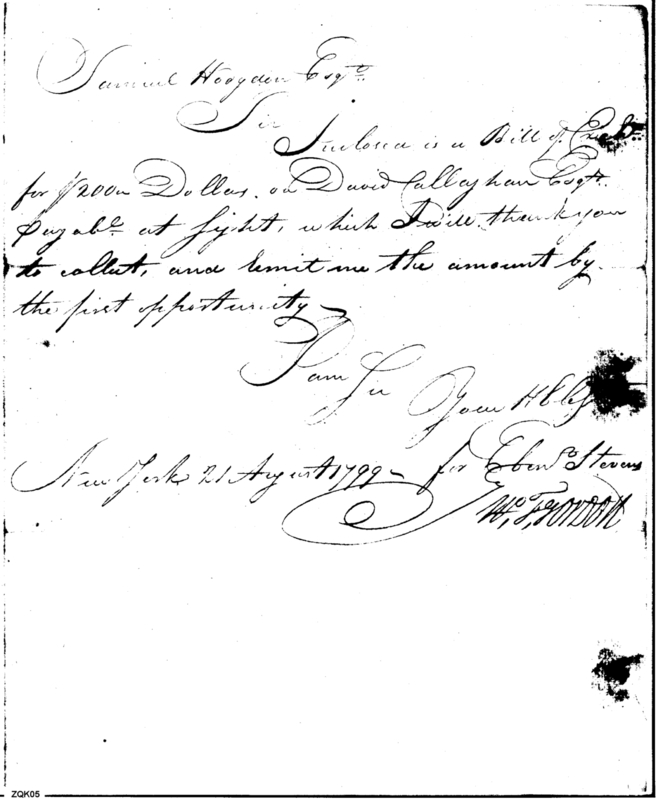 Samuel Hodgdon Esqre.
Sir
Inclosed is a Bill of Exch
for $2000 Dollars, on David Callaghan Esqr.
Payable. at sight, which I will thank you
to collect, and remit me the amount by
the first opportunity —
I am Sir Your H
New York 21 August 1799 — for Ebenr. Stevens
Wm. T, GORDON
ZQK05